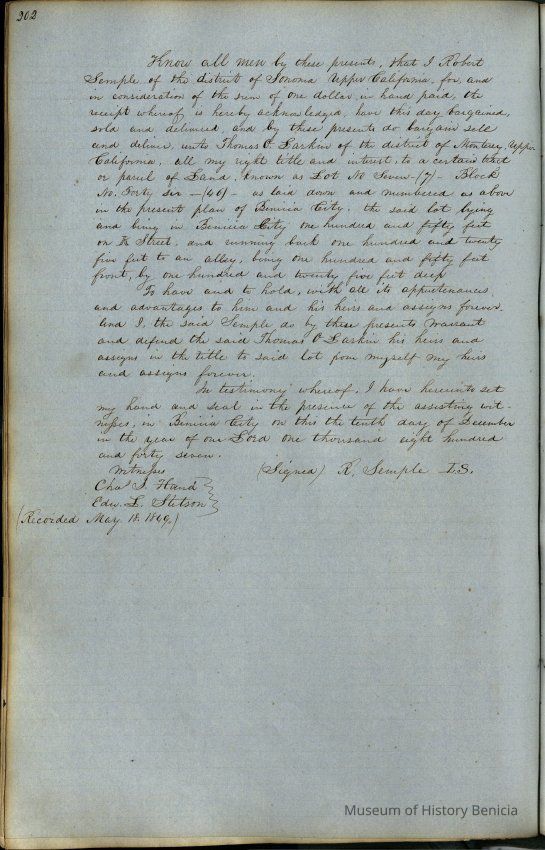 302
Know all men by these presents, that I Robert
Semple, of the district of Sonoma Upper California, for, and
in consideration of the sum of one dollar in hand paid, the
receipt whereof, is hereby acknowledged, have this day bargained,
sold and delivered, and by these presents do bargain sell
and deliver, unto Thomas O. Larkin of the district of Monterey, Upper
California, all my right title and interest, to a certain
or parcel of Land, known as Lot No Seven - (7) - Block
No. Forty six - (46) - as laid down and numbered as above
in the present plan of Benicia City. the said lot lying
and being in Benicia City one hundred and fifty feet
on Street, and running back one hundred and twenty
five feet to an alley, being one hundred and fifty feet
front, by one hundred and twenty five feet deep
To have and to hold, with all its appurtenances
and advantages to him and his heirs and assigns forever.
And I, the said Semple, do by these presents Warrant
and defend the said Thomas O Larkin his heirs and
assigns in the title to said lot from myself my heirs
and assigns forever.
In testimony whereof, I have hereunto set
my hand and seal in the presence of the assisting wit-
nesses, in Benicia City on this the tenth day of December
in the year of our Lord one thousand eight hundred
and forty seven.
Witnesses (Signed) R. Semple L.S.
Chas. Hand
Edw. L. Stetson
(Recorded May. 18. 1849.)
Museum of History Benicia